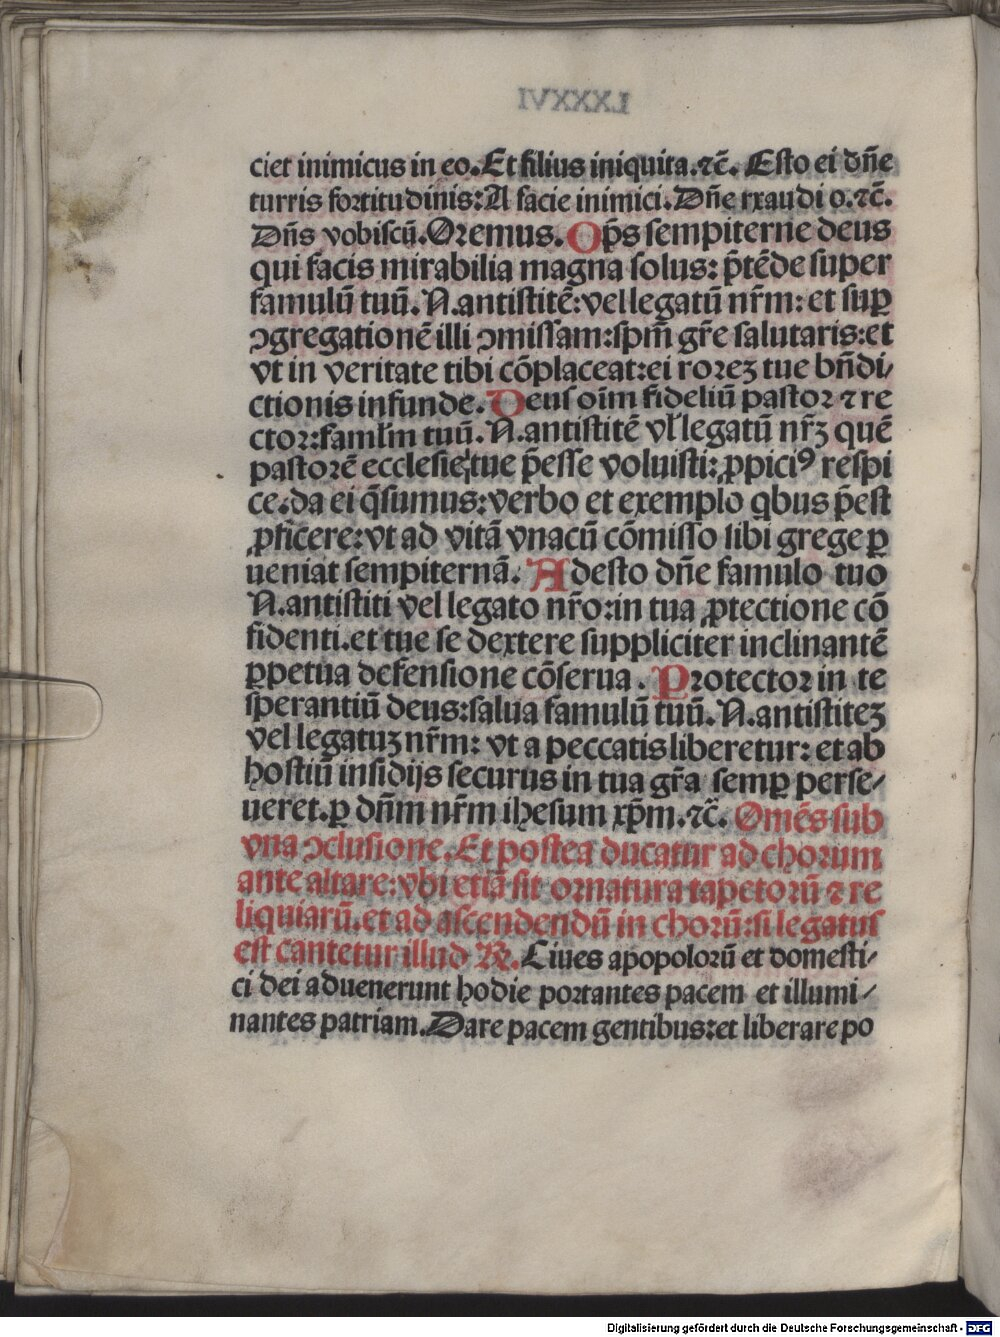 ciet inimicus in eo. Et filius iniquita. ⁊c̄. Esto ei dn̄e
turris fortitudinis: A facie inimici. Dn̄e exaudi o. ⁊c̄.
Dn̄s vobiscū. Oꝛemus. Op̄s sempiterne deus
qui facis mirabilia magna solus: p̄tēde super
famulū tuū. N. antistitē: vel legatū nr̄m: et suꝑ
ꝯgregationē illi ꝯmissam: sp̄m gr̄e salutaris: et
vt in veritate tibi cōplaceat: ei roꝛeꝫ tue bn̄di⸗
ctionis infunde. Deus oīm fideliū pastoꝛ ⁊ re
ctoꝛ: faml̄m tuū. N. antistitē vl̄ legatū nr̄ꝫ quē
pastoꝛē ecclesie tue p̄esse voluisti: ꝓpiciꝰ respi
ce: da ei q̄sumus: verbo et exemplo qbus p̄est
ꝓficere: vt ad vitā vnacū cōmisso sibi grege ꝑ
ueniat sempiternā. Adesto dn̄e famulo tuo
N. antistiti vel legato nr̄o: in tua ꝓtectione cō
fidenti. et tue se dextere suppliciter inclinantē
ꝑpetua defensione cōserua. Protectoꝛ in te
sperantiū deus: salua famulū tuū. N. antistiteꝫ
vel legatuꝫ nr̄m: vt a peccatis liberetur: et ab
hostiū insidijs securus in tua gr̄a semꝑ perse⸗
ueret. ꝑ dn̄m nr̄m ihesum xp̄m. ⁊c̄. Omēs sub
vna ꝯclusione. Et postea ducatur ad choꝛum
ante altare: vbi etiā sit oꝛnatura tapetoꝛū ⁊ re
liquiarū. et ad ascendendū in choꝛū: si legatus
est cantetur illud ℟. Ciues apopoloꝛū et domesti⸗
ci dei aduenerunt hodie poꝛtantes pacem et illumi⸗
nantes patriam. Dare pacem gentibus: et liberare po
Digitalisierung gefördert durch die Deutsche Forschungsgemeinschaft - DFG